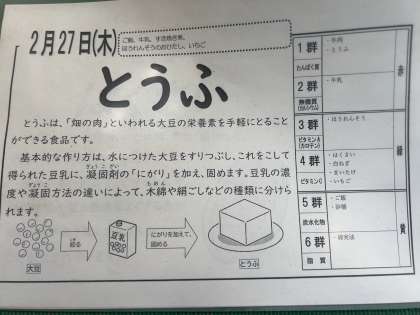 2月27日(木)
ご飯、牛乳、すき焼き煮、
ほうれんそうのおひたし、いちご
とうふ
とうふは、「畑の肉」といわれる大豆の栄養素を手軽にとること
ができる食品です。
基本的な作り方は、水につけた大豆をすりつぶし、これをこして
ぎょうこざい
得られた豆乳に、凝固剤の「にがり」を加え、固めます。豆乳の濃
ぎょうこ
もめん
度や凝固方法の違いによって、木綿や絹ごしなどの種類に分けら
れます。
大豆
絞る
豆乳
にがりを加えて、
固める
とうふ
1群
たんぱく質
・牛肉
・とうふ
2群
無機質
(カルシウム)
・牛乳
赤
3群
ビタミンA
(カロテン)
・ほうれんそう
4群
ビタミンC
・はくさい
・白ねぎ
・えのたけ
・いちご
緑
5群
炭水化物
・ご飯
・砂糖
6群
脂質
黄